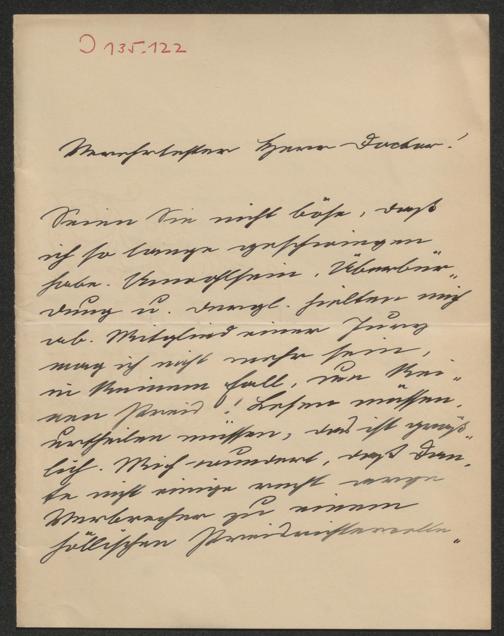 J 135.122
Verehrtester Herr Doctor!
Seien Sie nicht böse, daß
ich so lange geschwiegen
habe. Unwohlsein, Überbür„
dung u. dergl. hielten mich
ab. Mitglied einer Jury
mag ich nicht mehr sein,
in keinem Fall, um kei„
nen Preis! Lesen müssen,
urtheilen müssen, das ist gräß„
lich. Mich wundert, daß Dan„
te nicht einige recht arge
Verbrecher zu einem
höllischen Preisrichtercolle„